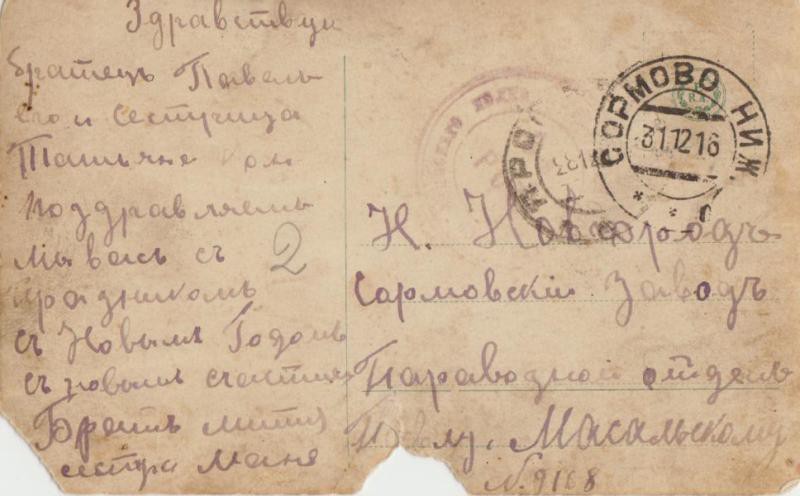 Здравствуи
братецъ Павель
его и Сестрица
Татьяне
поздравляемъ
мы васъ съ
празникомъ
съ Новымъ Годомъ
съ новымъ счастием
Братъ митя
сестра Маня
2
СОРМОВО НИЖ.
31.12.16
Н. Новгородъ
Сормовскiи Заводъ
Параводной отделъ
Масальскому
N. 9168